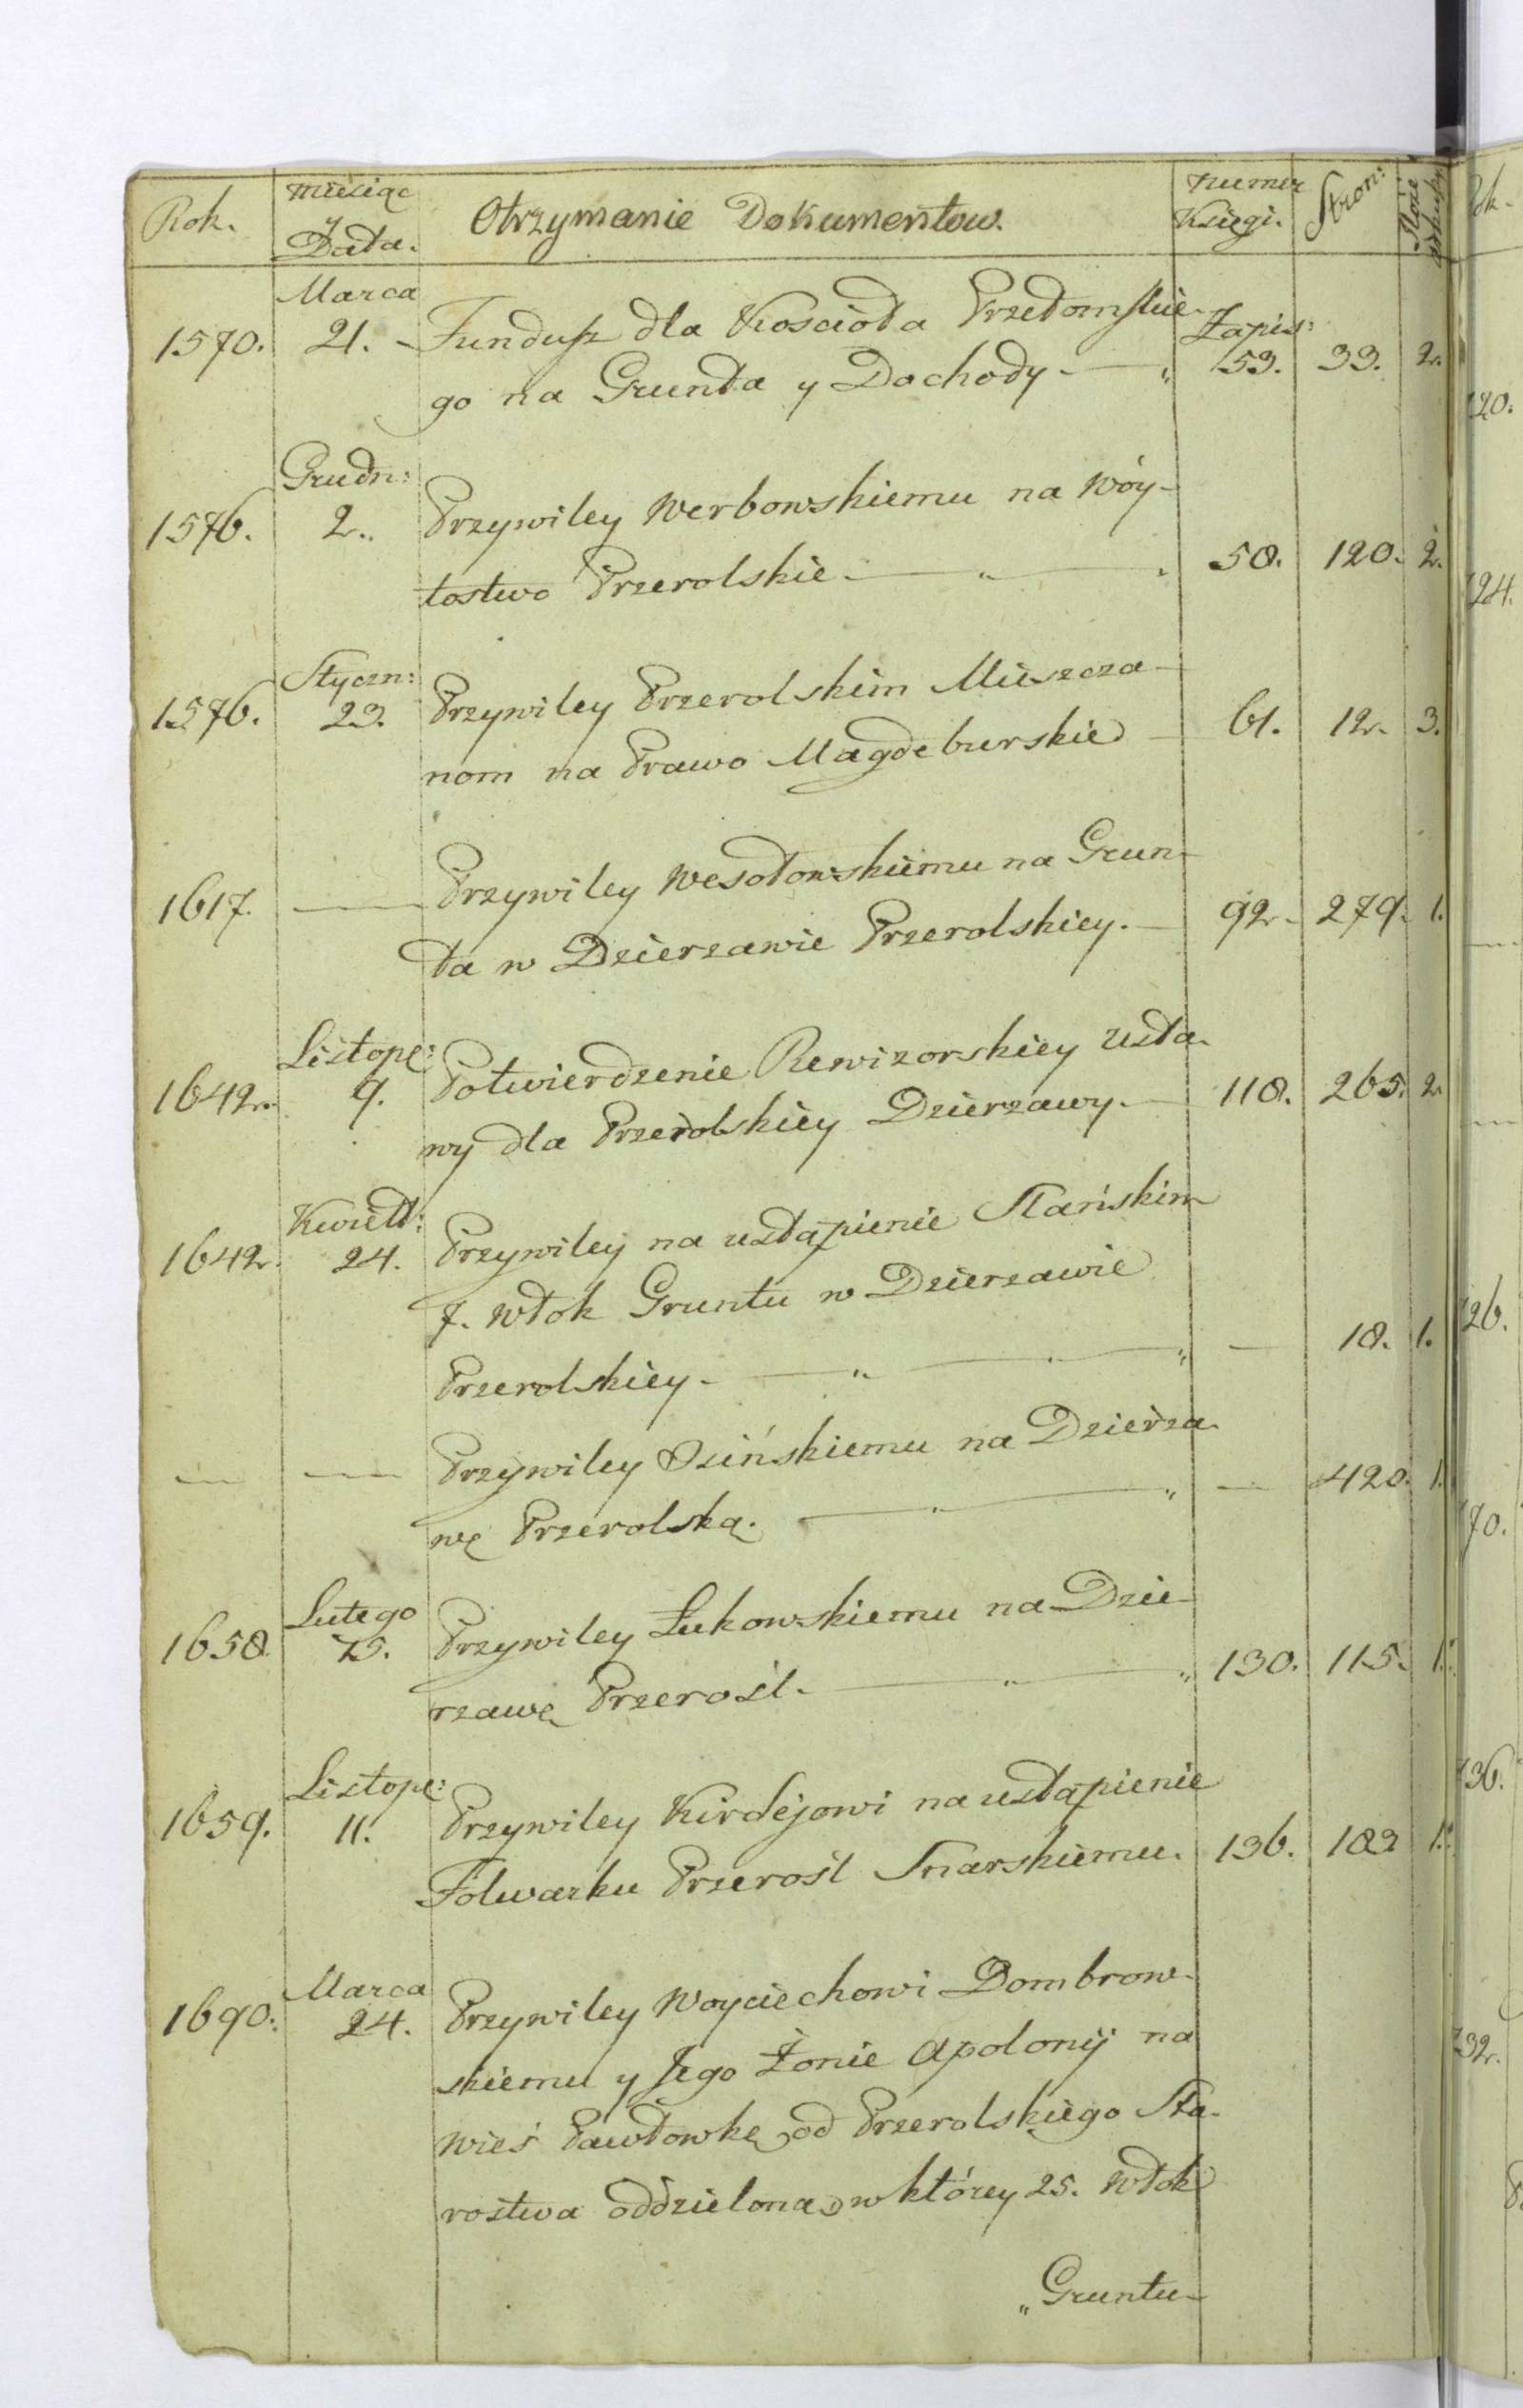 Rok. Miesiąc y Data. Otrzymanie Dokumentow. Numer Księgi. Stron:
Marca
1570. 21. Fundusz dla Kościoła Przełomskie- Zapis:
go na Grunta y Dochody 53. 33. 2.
Grudn:
1576. 2. Przywiley Werbowskiemu na Wóy-
tostwo Przerolskie 58. 120. 2.
Styczn:
1576. 23. Przywiley Przerolskim Mieszcza-
nom na Prawo Magdeburskie 61. 12. 3.
1617. Przywiley Wesołowskiemu na Grun-
ta w Dzierzawie Przerolskiey. 92. 279. 1.
Listopa:
1642. 9. Potwierdzenie Rewizorskiey usta-
wy dla Przerolskiey Dzierzawy. 118. 265. 2.
Kwiett:
1642. 24. Przywiley na ustąpienie Stańskim
7. Włok Gruntu w Dzierzawie
Przerolskiey. 18. 1.
Przywiley Osińskiemu na Dzierża-
wę Przerolską. 420. 1.
Lutego
1658. 25. Przywiley Łukowskiemu na Dzie-
rzawę Przerośl. 130. 115. 1.
Listopa:
1659. 11. Przywiley Kirdejowi na ustąpienie
Folwarku Przerośl Snarskiemu. 136. 183 1.
Marca
1690. 24. Przywiley Woyciechowi Dombrow-
skiemu y Jego Żonie Apolonij na
Wieś Pawłowkę od Przerolskiego Sta-
rostwa oddzielona w którey 25. Włok
Gruntu